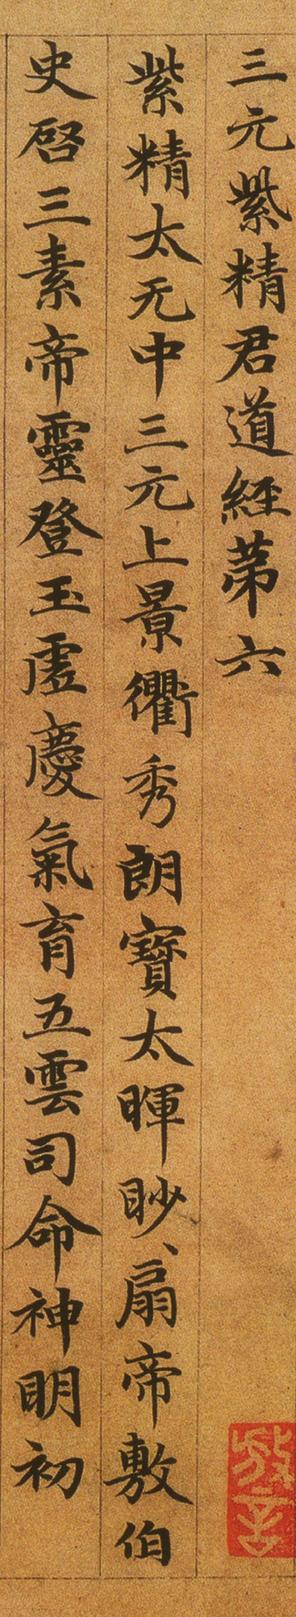 三元紫精君道經第六
紫精太无中三元上景衢秀朗寶太暉眇、扇帝敷伯
史啓三素帝靈登玉虛慶氣育五雲司命神明初